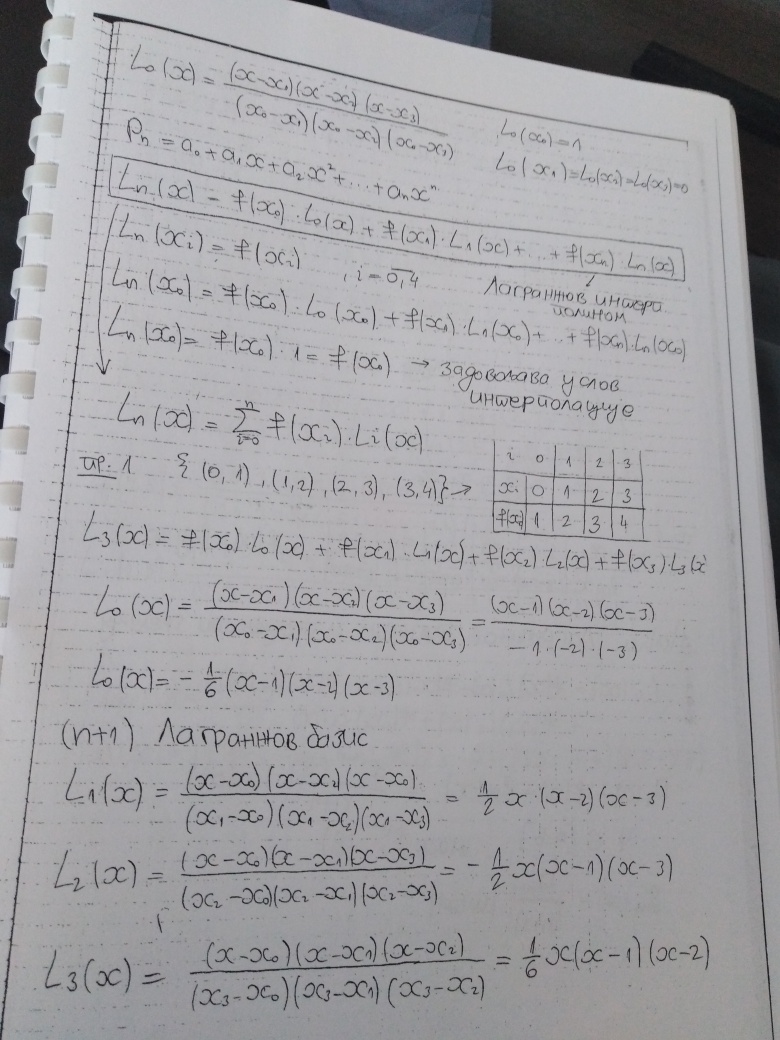 L₀(x) = (x-x₁)(x-x₂)(x-x₃) / (x₀-x₁)(x₀-x₂)(x₀-x₃)
L₀(x₀)=1
L₀(x₁)=L₀(x₂)=L₀(x₃)=0
Pn = a₀+a₁x+a₂x²+...+aₙxⁿ
Ln(x) = f(x₀)·L₀(x)+f(x₁)·L₁(x)+...+f(xₙ)·Lₙ(x)
Лагранжов интерп.
полином
Ln(xi) = f(xi) , i=0,4
Ln(x₀) = f(x₀)·L₀(x₀)+f(x₁)·L₁(x₀)+...+f(xₙ)·Ln(x₀)
Ln(x₀) = f(x₀)·1 = f(x₀) → задовољава услов
интерполације
Ln(x) = ∑ⁿᵢ₌₀ f(xi)·Li(x)
пр. 1 {(0,1), (1,2), (2,3), (3,4)} →
i 0 1 2 3
xi 0 1 2 3
f(xi) 1 2 3 4
L₃(x) = f(x₀)·L₀(x) + f(x₁)·L₁(x) + f(x₂)·L₂(x) + f(x₃)·L₃(x)
L₀(x) = (x-x₁)(x-x₂)(x-x₃) / (x₀-x₁)(x₀-x₂)(x₀-x₃) = (x-1)(x-2)(x-3) / -1·(-2)·(-3)
L₀(x) = -1/6 (x-1)(x-2)(x-3)
(n+1) Лагранжов базис
L₁(x) = (x-x₀)(x-x₂)(x-x₀) / (x₁-x₀)(x₁-x₂)(x₁-x₃) = 1/2 x·(x-2)(x-3)
L₂(x) = (x-x₀)(x-x₁)(x-x₃) / (x₂-x₀)(x₂-x₁)(x₂-x₃) = -1/2 x(x-1)(x-3)
L₃(x) = (x-x₀)(x-x₁)(x-x₂) / (x₃-x₀)(x₃-x₁)(x₃-x₂) = 1/6 x(x-1)(x-2)